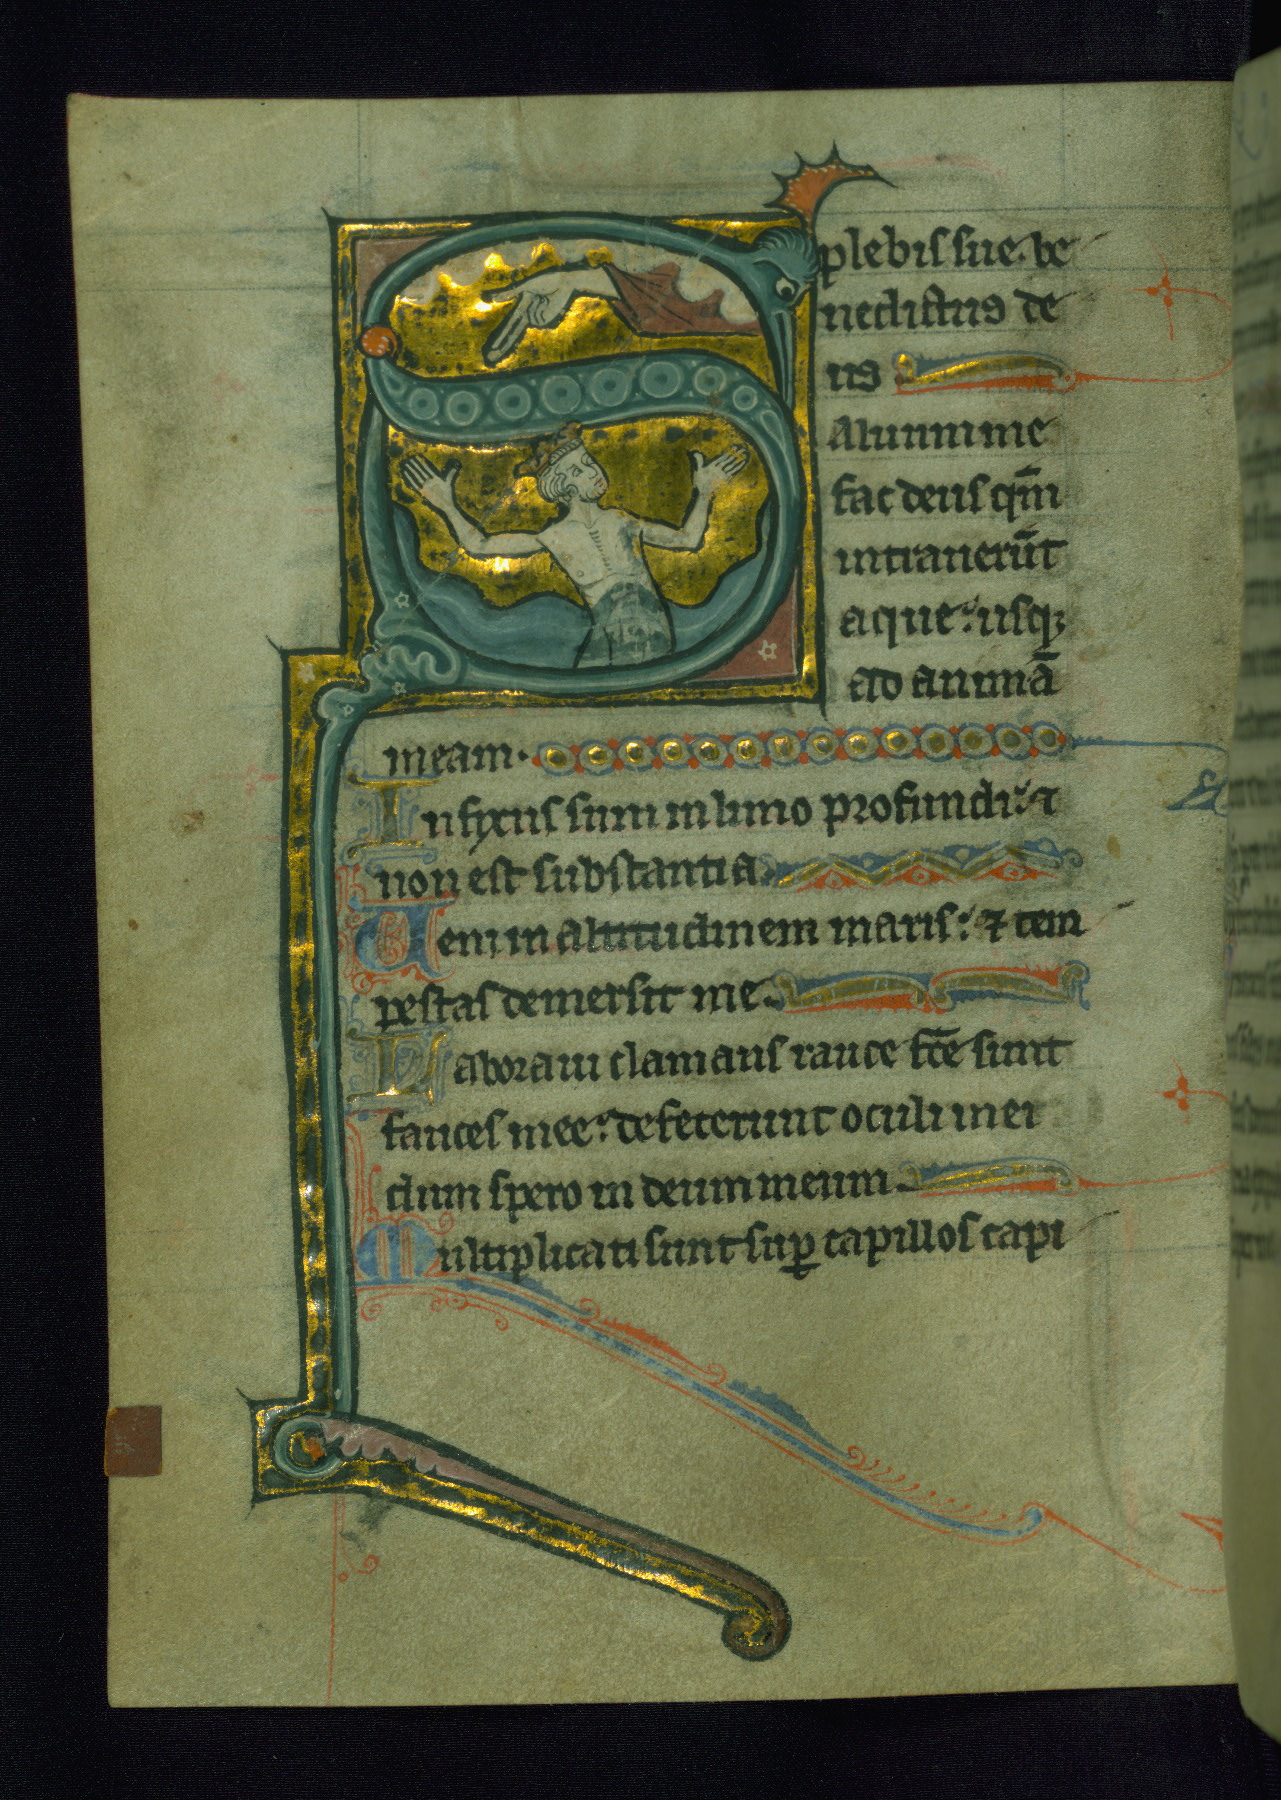 plebis sue. be
nedictus de
us
Saluum me
fac deus qm̄
intrauerūt
aque: usq;
ad animā
meam.
Infixus sum in limo profundi: ⁊
non est substantia.
Ueni in altitudinem maris: ⁊ tem
pestas demersit me.
Laboraui clamans rauce fcē sunt
fauces mee: defecerunt oculi mei
dum spero in deum meum.
Multiplicati sunt suꝑ capillos capi